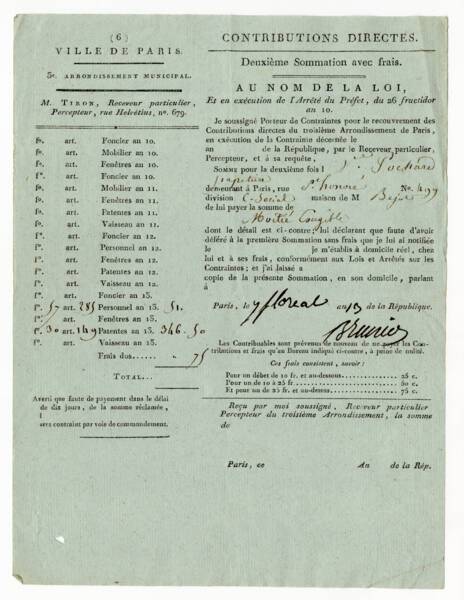 (6)
VILLE DE PARIS.
3e. ARRONDISSEMENT MUNICIPAL.
M. TIRON, Receveur particulier,
Percepteur, rue Helvétius, no. 679.
fo. art. Foncier an 10.
fo. art. Mobilier an 10.
fo. art. Fenêtres an 10.
fo. art. Foncier an 10.
fo. art. Mobilier an 11.
fo. art. Fenêtres an 11.
fo. art. Patentes an 11.
fo. art. Vaisseau an 11.
fo. art. Foncier an 12.
fo. art. Personnel an 12.
fo. art. Fenêtres an 12.
fo. art. Patentes an 12.
fo. art. Vaisseau an 12.
fo. art. Foncier an 13.
fo. 57 art. 285 Personnel an 13. 51.
fo. art. Fenêtres an 13.
fo. 30 art. 149 Patentes an 13. 346. 50
fo. art. Vaisseau an 13.
Frais dus..... " 75
TOTAL...
Averti que faute de payement dans le délai
de dix jours, de la somme réclamée, il
sera contraint par voie de commandement.
CONTRIBUTIONS DIRECTES.
Deuxième Sommation avec frais.
AU NOM DE LA LOI,
Et en exécution de l'Arrêté du Préfet, du 26 fructidor
an 10.
Je soussigné Porteur de Contraintes pour le recouvrement des
Contributions directes du troisième Arrondissement de Paris,
en exécution de la Contrainte décernée le
an de la République, par le Receveur particulier,
Percepteur, et à sa requête,
SOMME pour la deuxième fois
demeurant à Paris, rue St. honoré No. 499
division maison de M
de lui payer la somme de
Moitié Exigible
dont le détail est ci-contre; lui déclarant que faute d'avoir
déféré à la première Sommation sans frais que je lui ai notifiée
le je m'établis à domicile réel, chez
lui et à ses frais, conformément aux Lois et Arrêtés sur les
Contraintes; et j'ai laissé a
copie de la présente Sommation, en son domicile, parlant
à
Paris, le 7 floreal an 13 de la République.
Les Contribuables sont prévenus de nouveau de ne payer les Con-
tributions et frais qu'au Bureau indiqué ci-contre, à peine de nullité.
Ces frais consistent, savoir:
Pour un débet de 10 fr. et au-dessous..... 25 c.
Pour un de 10 à 25 fr. 50 c.
Et pour un de 25 fr. et au-dessus..... 75 c.
Reçu par moi soussigné, Receveur particulier
Percepteur du troisième Arrondissement, la somme
de
Paris, ce An de la Rép.